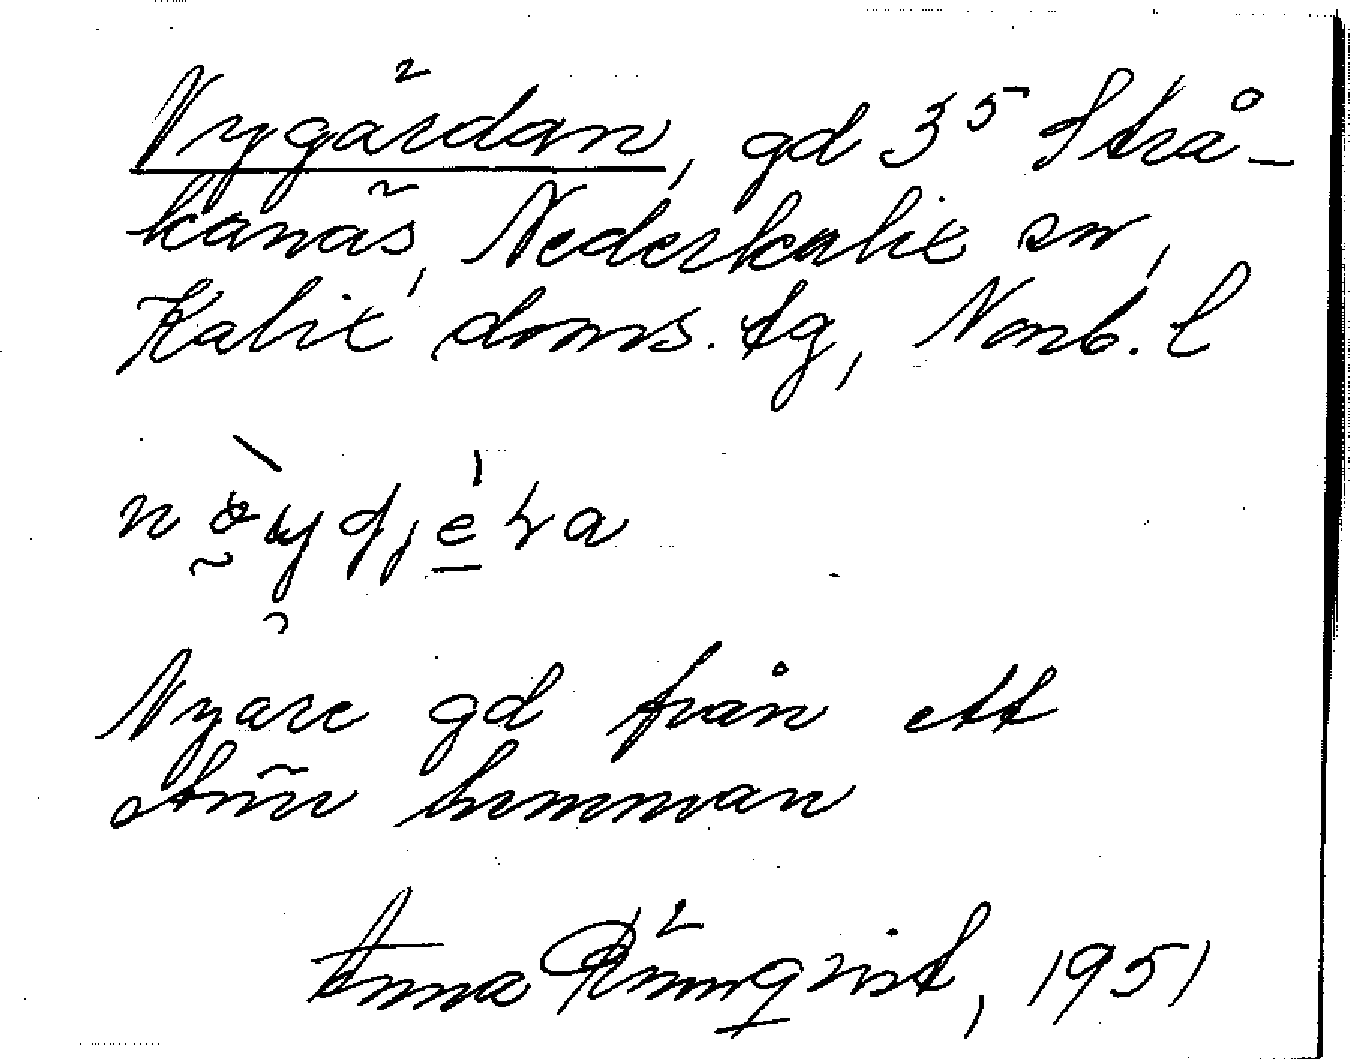 Nygärdan, gd 3⁵ Strå-
kanäs, Nederkalix sn,
Kalix doms. tg, Norrb. l
Nyare gd från ett
större hemman
Anna Rönnqvist, 1951